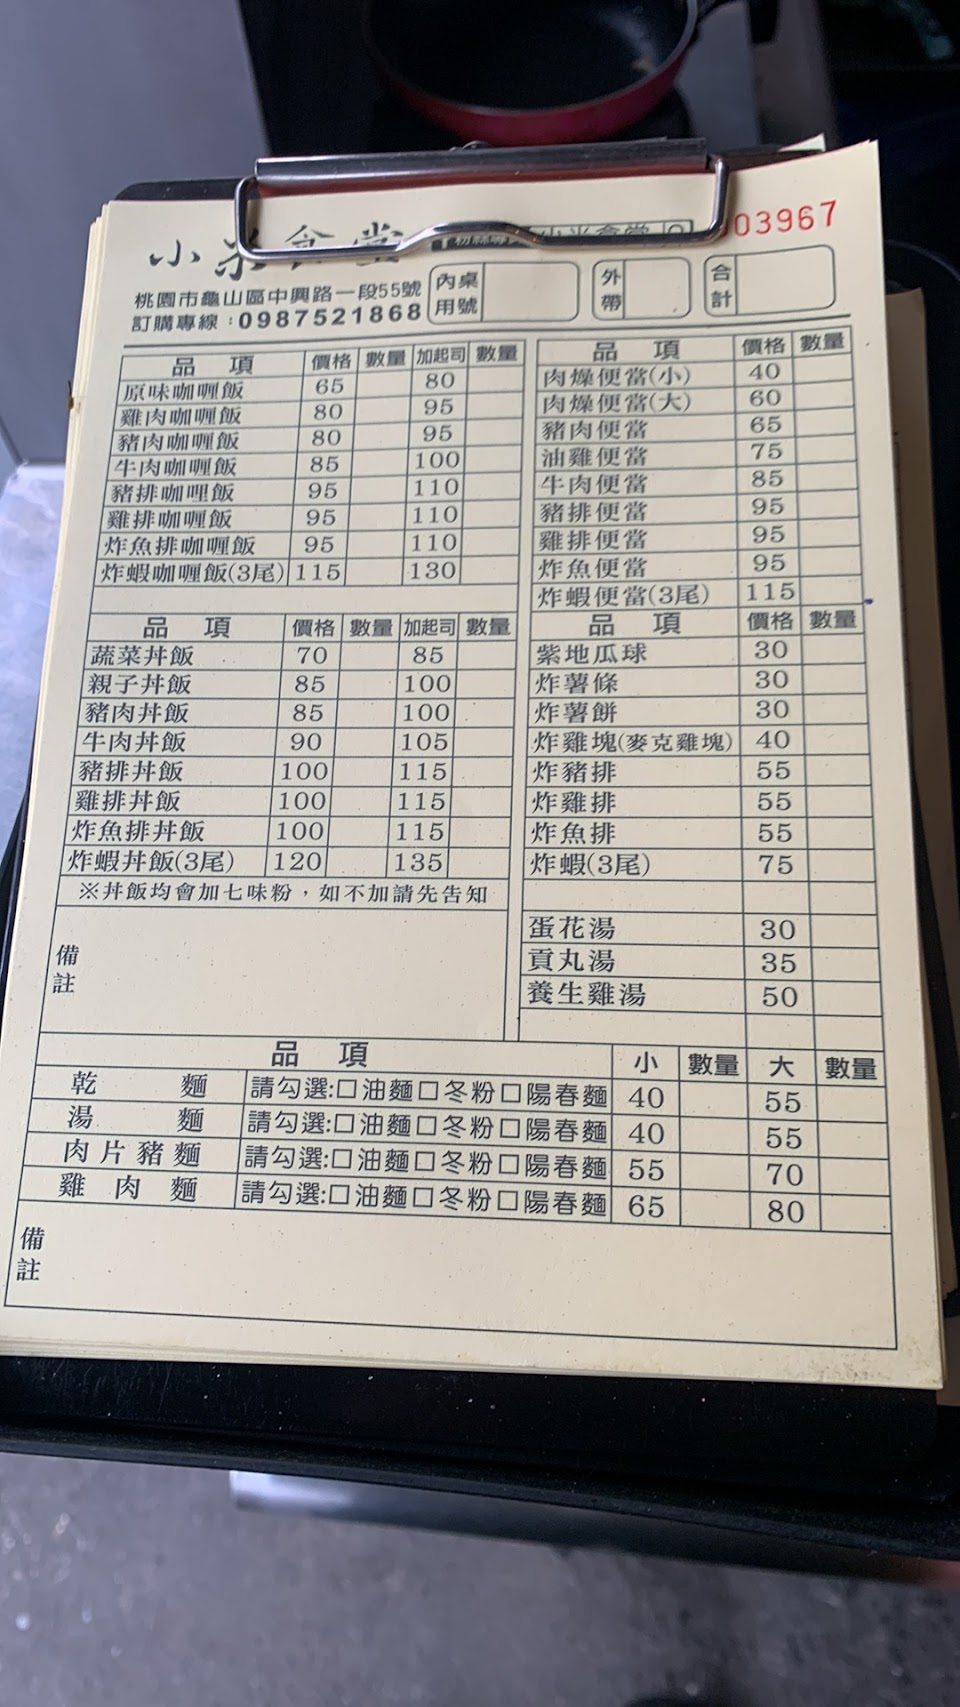 小米食堂
03967
桃園市龜山區中興路一段55號
訂購專線：0987521868
內用 桌號
外帶
合計
品項 價格 數量 加起司 數量
原味咖喱飯 65 80
雞肉咖喱飯 80 95
豬肉咖喱飯 80 95
牛肉咖喱飯 85 100
豬排咖哩飯 95 110
雞排咖喱飯 95 110
炸魚排咖喱飯 95 110
炸蝦咖喱飯(3尾) 115 130
品項 價格 數量 加起司 數量
蔬菜丼飯 70 85
親子丼飯 85 100
豬肉丼飯 85 100
牛肉丼飯 90 105
豬排丼飯 100 115
雞排丼飯 100 115
炸魚排丼飯 100 115
炸蝦丼飯(3尾) 120 135
※丼飯均會加七味粉，如不加請先告知
備註
品項 價格 數量
肉燥便當(小) 40
肉燥便當(大) 60
豬肉便當 65
油雞便當 75
牛肉便當 85
豬排便當 95
雞排便當 95
炸魚便當 95
炸蝦便當(3尾) 115
品項 價格 數量
紫地瓜球 30
炸薯條 30
炸薯餅 30
炸雞塊(麥克雞塊) 40
炸豬排 55
炸雞排 55
炸魚排 55
炸蝦(3尾) 75
蛋花湯 30
貢丸湯 35
養生雞湯 50
品項 小 數量 大 數量
乾麵 請勾選:□油麵□冬粉□陽春麵 40 55
湯麵 請勾選:□油麵□冬粉□陽春麵 40 55
肉片豬麵 請勾選:□油麵□冬粉□陽春麵 55 70
雞肉麵 請勾選:□油麵□冬粉□陽春麵 65 80
備註